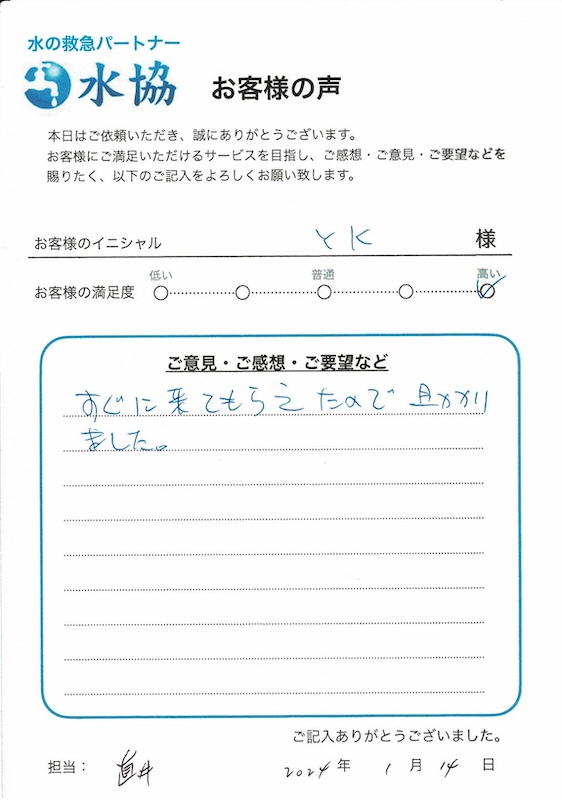 水の救急パートナー
水協 お客様の声
本日はご依頼いただき、誠にありがとうございます。
お客様にご満足いただけるサービスを目指し、ご感想・ご意見・ご要望などを
賜りたく、以下のご記入をよろしくお願い致します。
お客様のイニシャル YK 様
低い 普通 高い
お客様の満足度
ご意見・ご感想・ご要望など
すぐに来てもらえたので助かり
ました。
ご記入ありがとうございました。
担当： 直井 2024年 1月 14日